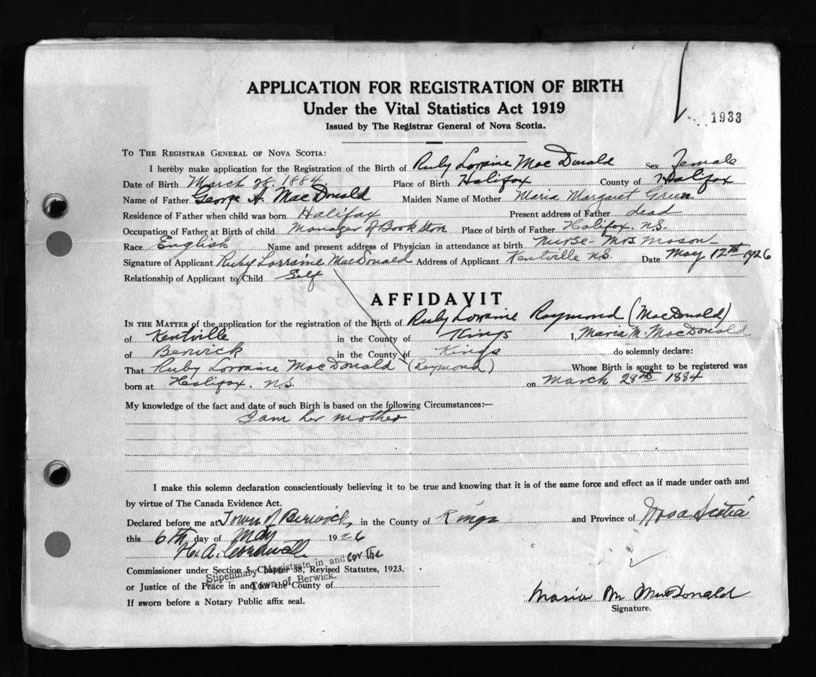 APPLICATION FOR REGISTRATION OF BIRTH
Under the Vital Statistics Act 1919
Issued by The Registrar General of Nova Scotia.
1933
TO THE REGISTRAR GENERAL OF NOVA SCOTIA:
I hereby make application for the Registration of the Birth of Ruby Lorraine MacDonald Sex Female
Date of Birth March 28. 1884 Place of Birth Halifax County of Halifax
Name of Father George A. MacDonald Maiden Name of Mother Maria Margaret Green
Residence of Father when child was born Halifax Present address of Father dead
Occupation of Father at Birth of child Manager of Book Store Place of birth of Father Halifax N.S.
Race English Name and present address of Physician in attendance at birth Nurse - Mrs Mason
Signature of Applicant Ruby Lorraine MacDonald Address of Applicant Kentville N.S. Date May 12th 1926
Relationship of Applicant to Child Self
AFFIDAVIT
IN THE MATTER of the application for the registration of the Birth of Ruby Lorraine Raymond (MacDonald)
of Kentville in the County of Kings I, Maria M. MacDonald
of Berwick in the County of Kings do solemnly declare:
That Ruby Lorraine MacDonald (Raymond) Whose Birth is sought to be registered was
born at Halifax, N.S. on March 28th 1884
My knowledge of the fact and date of such Birth is based on the following Circumstances:—
I am her mother
I make this solemn declaration conscientiously believing it to be true and knowing that it is of the same force and effect as if made under oath and
by virtue of The Canada Evidence Act.
Declared before me at Town of Berwick, in the County of Kings and Province of Nova Scotia
this 6th day of May 1926
Commissioner under Section 5, Chapter 38, Revised Statutes, 1923.
Stipendiary Magistrate in and for the
or Justice of the Peace in and for the County of
Town of Berwick.
If sworn before a Notary Public affix seal.
Maria M MacDonald
Signature.